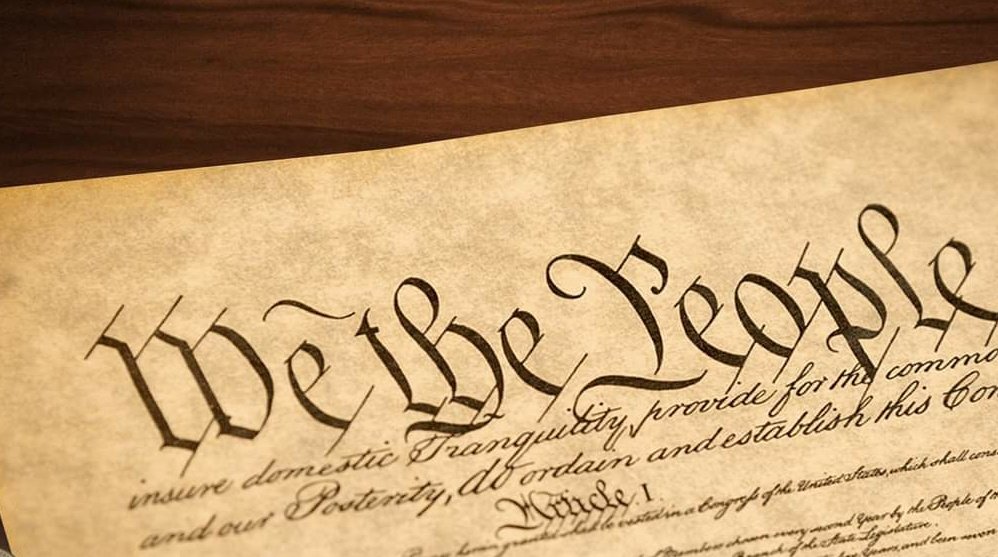 We the People
insure domestic Tranquility, provide for the commo
and our Posterity, do ordain and establish this Con
Article I.
vested in a Congress of the United States, which shall cons
Members chosen every second Year by the People of
Branch of the State Legislature.
Years, and been